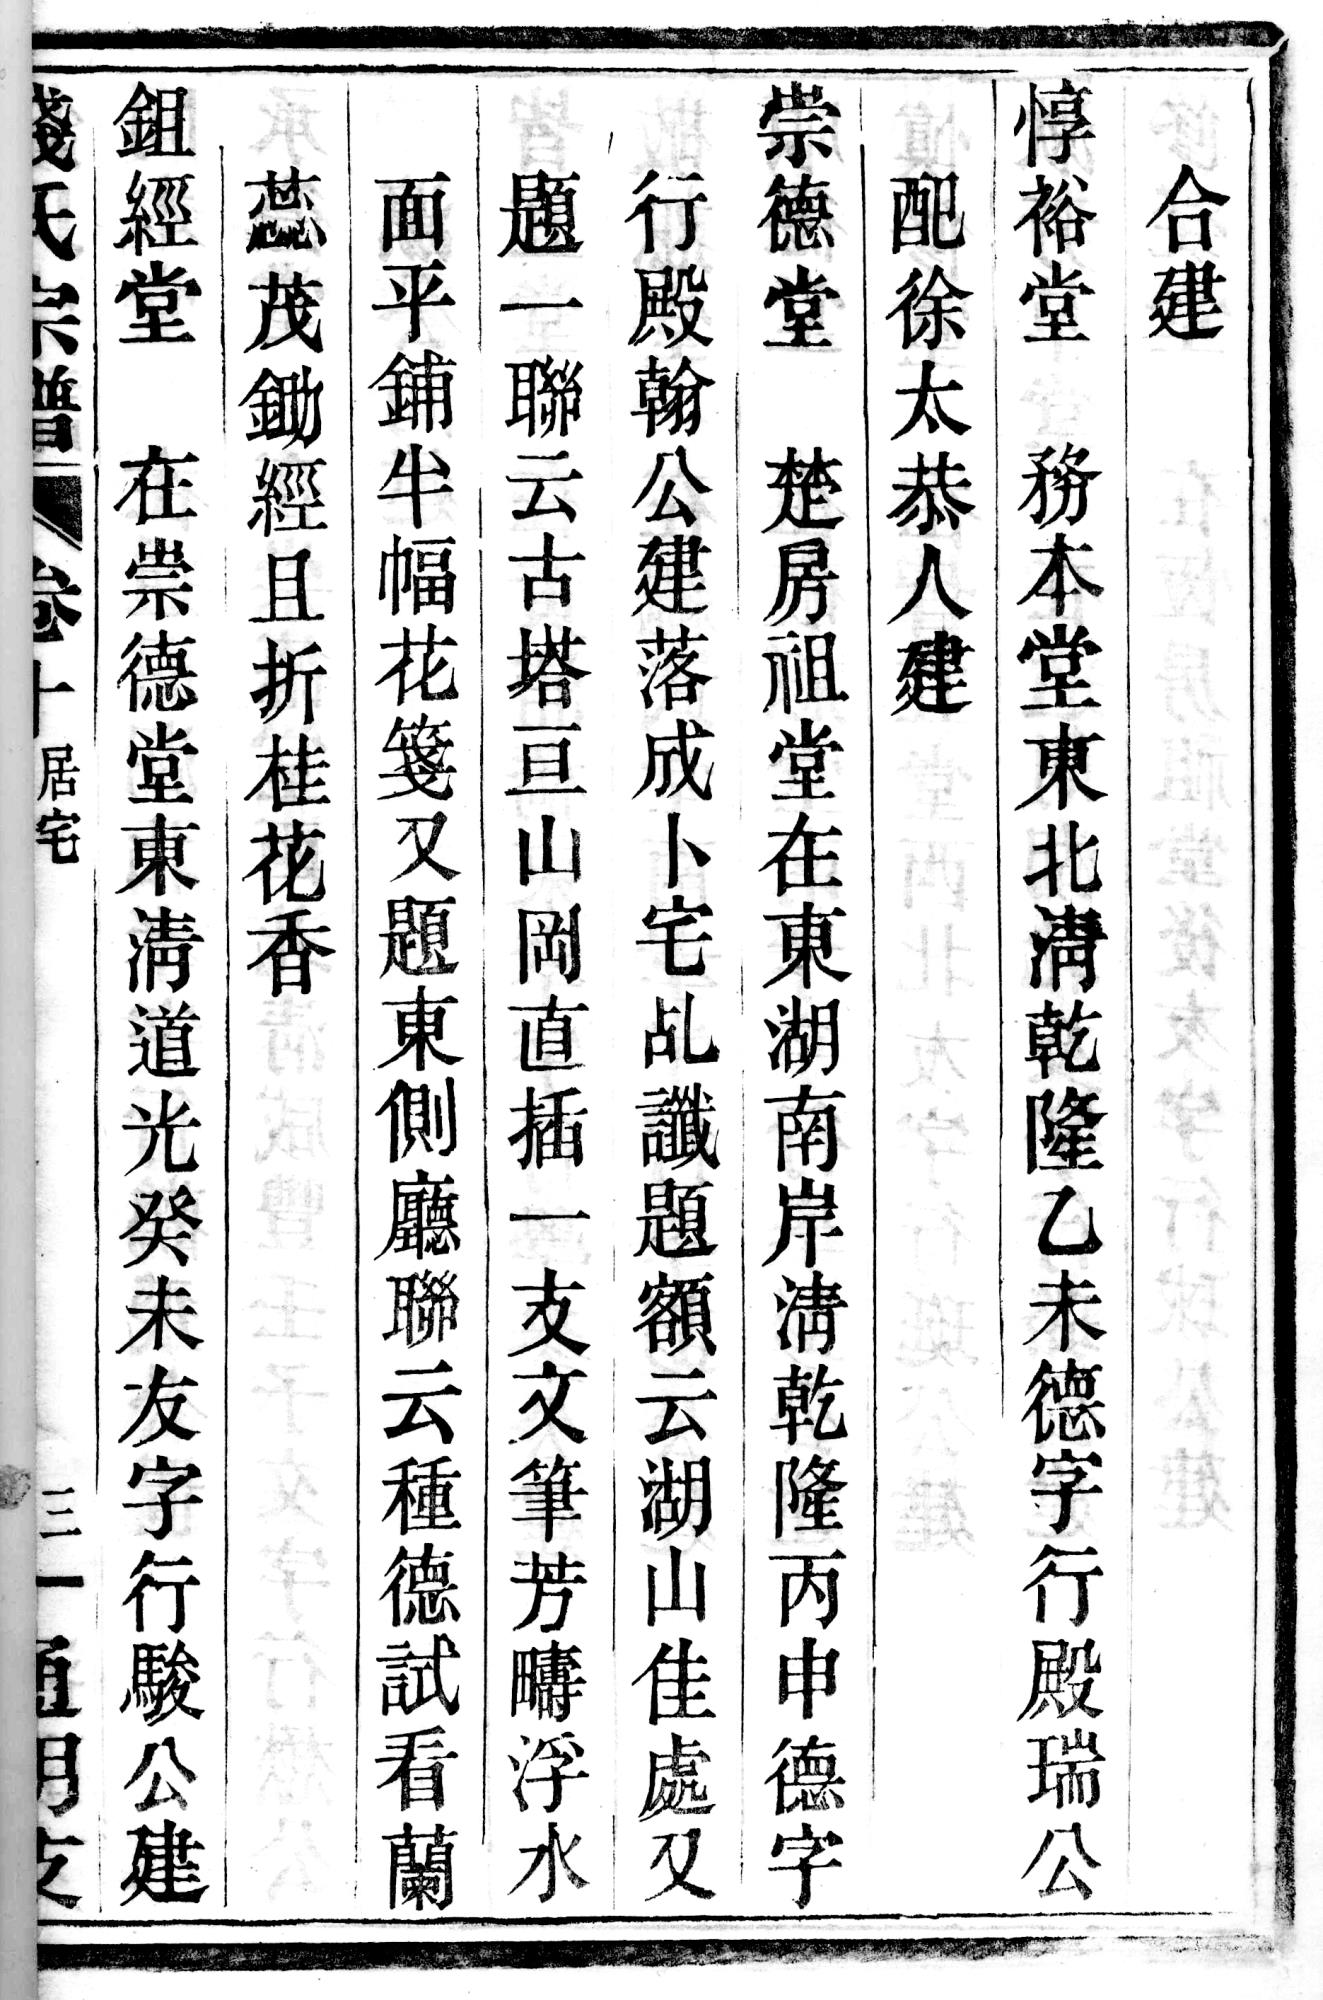 合建
惇裕堂　務本堂東北淸乾隆乙未德字行殿瑞公
配徐太恭人建
崇德堂　楚房祖堂在東湖南岸淸乾隆丙申德字
行殿翰公建落成卜宅乩讖題額云湖山佳處又
題一聯云古塔亘山岡直插一支文筆芳疇浮水
面平鋪半幅花箋又題東側廳聯云種德試看蘭
蕊茂鋤經且折桂花香
鉏經堂　在崇德堂東淸道光癸未友字行駿公建
錢氏宗譜　卷十　居宅　三一　通明支